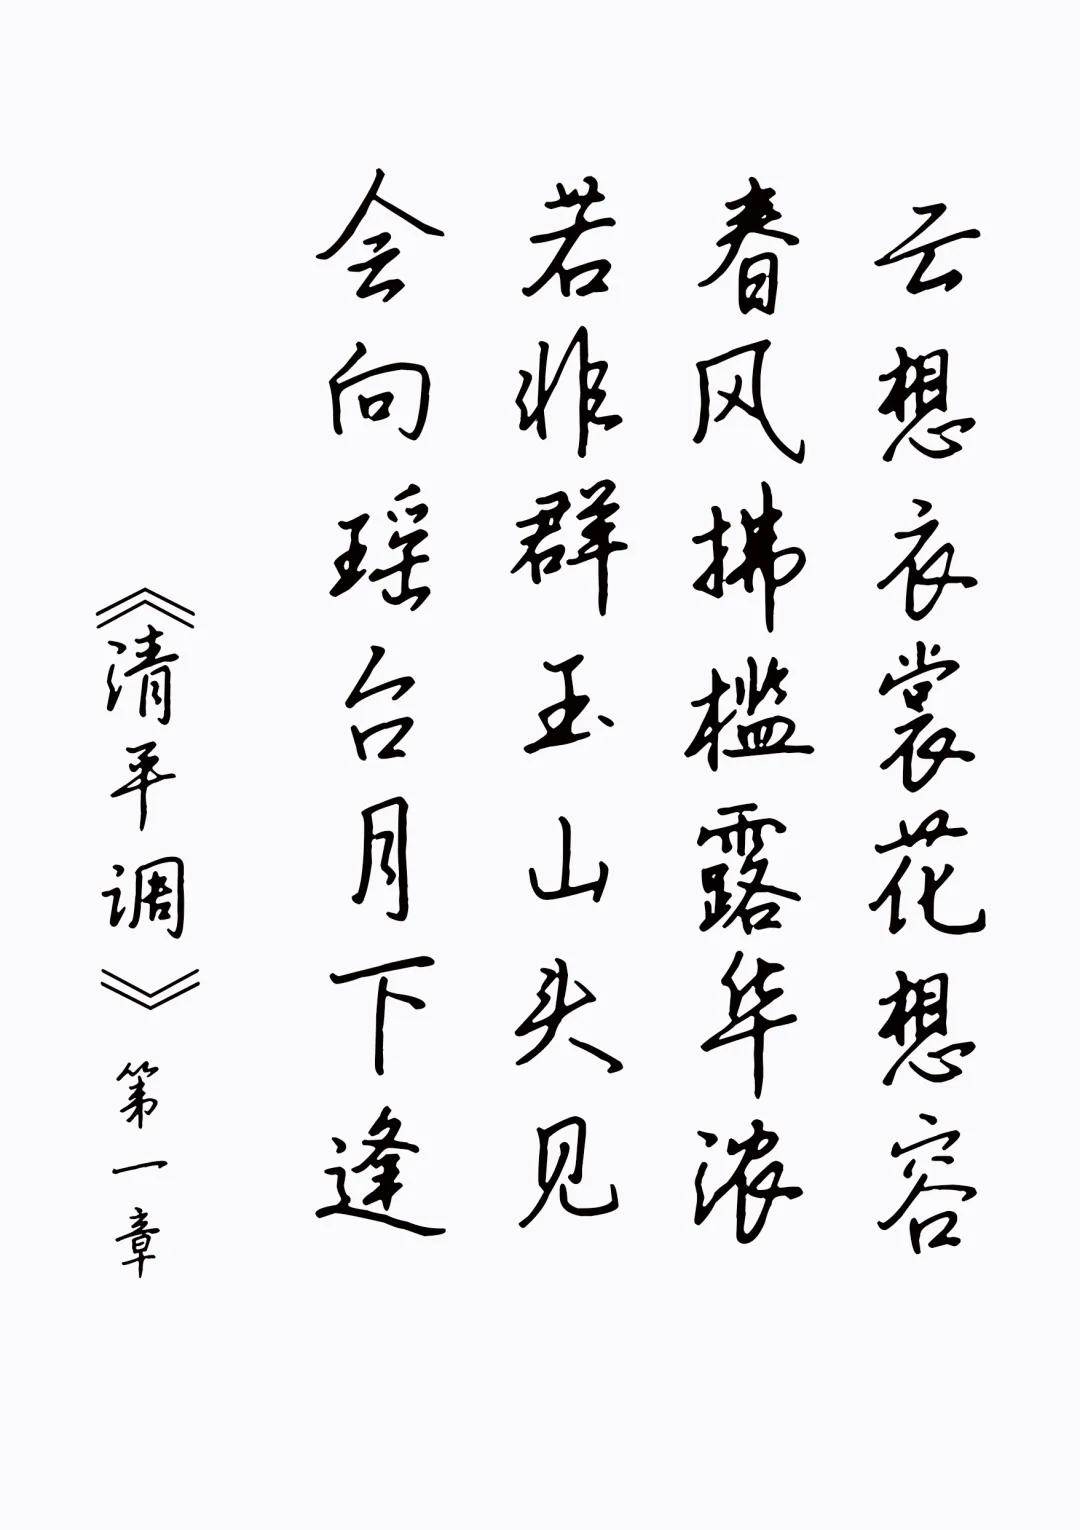 云想衣裳花想容
春风拂槛露华浓
若非群玉山头见
会向瑶台月下逢
《清平调》第一章